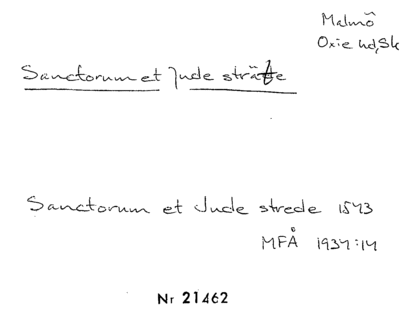 Malmö
Oxie hd, Sk
Sanctorum et Jude sträte
Sanctorum et Jude strede 1573
MFÅ 1937:14
Nr 21462